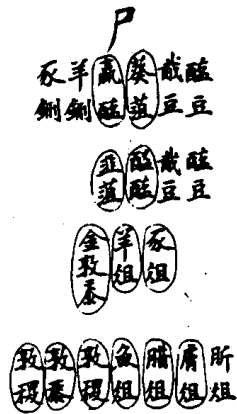 尸
豕鉶
羊鉶
蠃醢
葵菹
胾豆
醢豆
韭菹
醓醢
胾豆
醢豆
金敦黍
羊俎
豕俎
敦稷
敦黍
敦稷
魚俎
腊俎
膚俎
肵俎